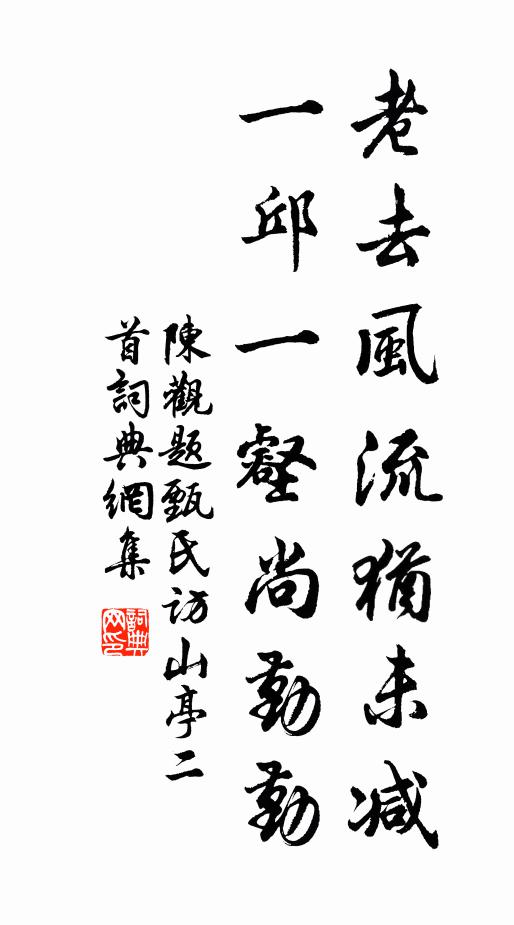 老去風流猶未减
一邱一壑尚勤勤
陳觀题甄氏访山亭二
首詞典網集
詞典
网印